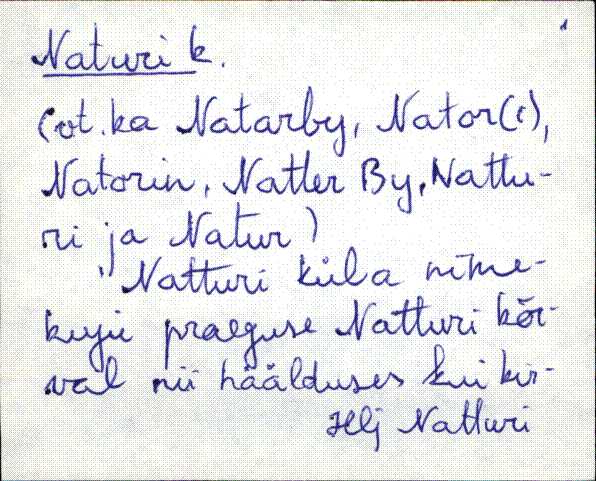 Naturi k.
(vt. ka Natarby, Nator(i),
Natorin, Natler By, Nattu-
ri ja Natur)
"Natturi küla nime-
kuju praeguse Natturi kõr-
val nii häälduses kui kir-
Hlj Natturi